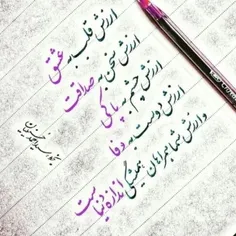 ارزش قلب به عشق
ارزش سخن به صداقت
ارزش چشم به پاکی
ارزش دوست به وفا
و ارزش شما همراهان همیشگی اندازه دنیاست